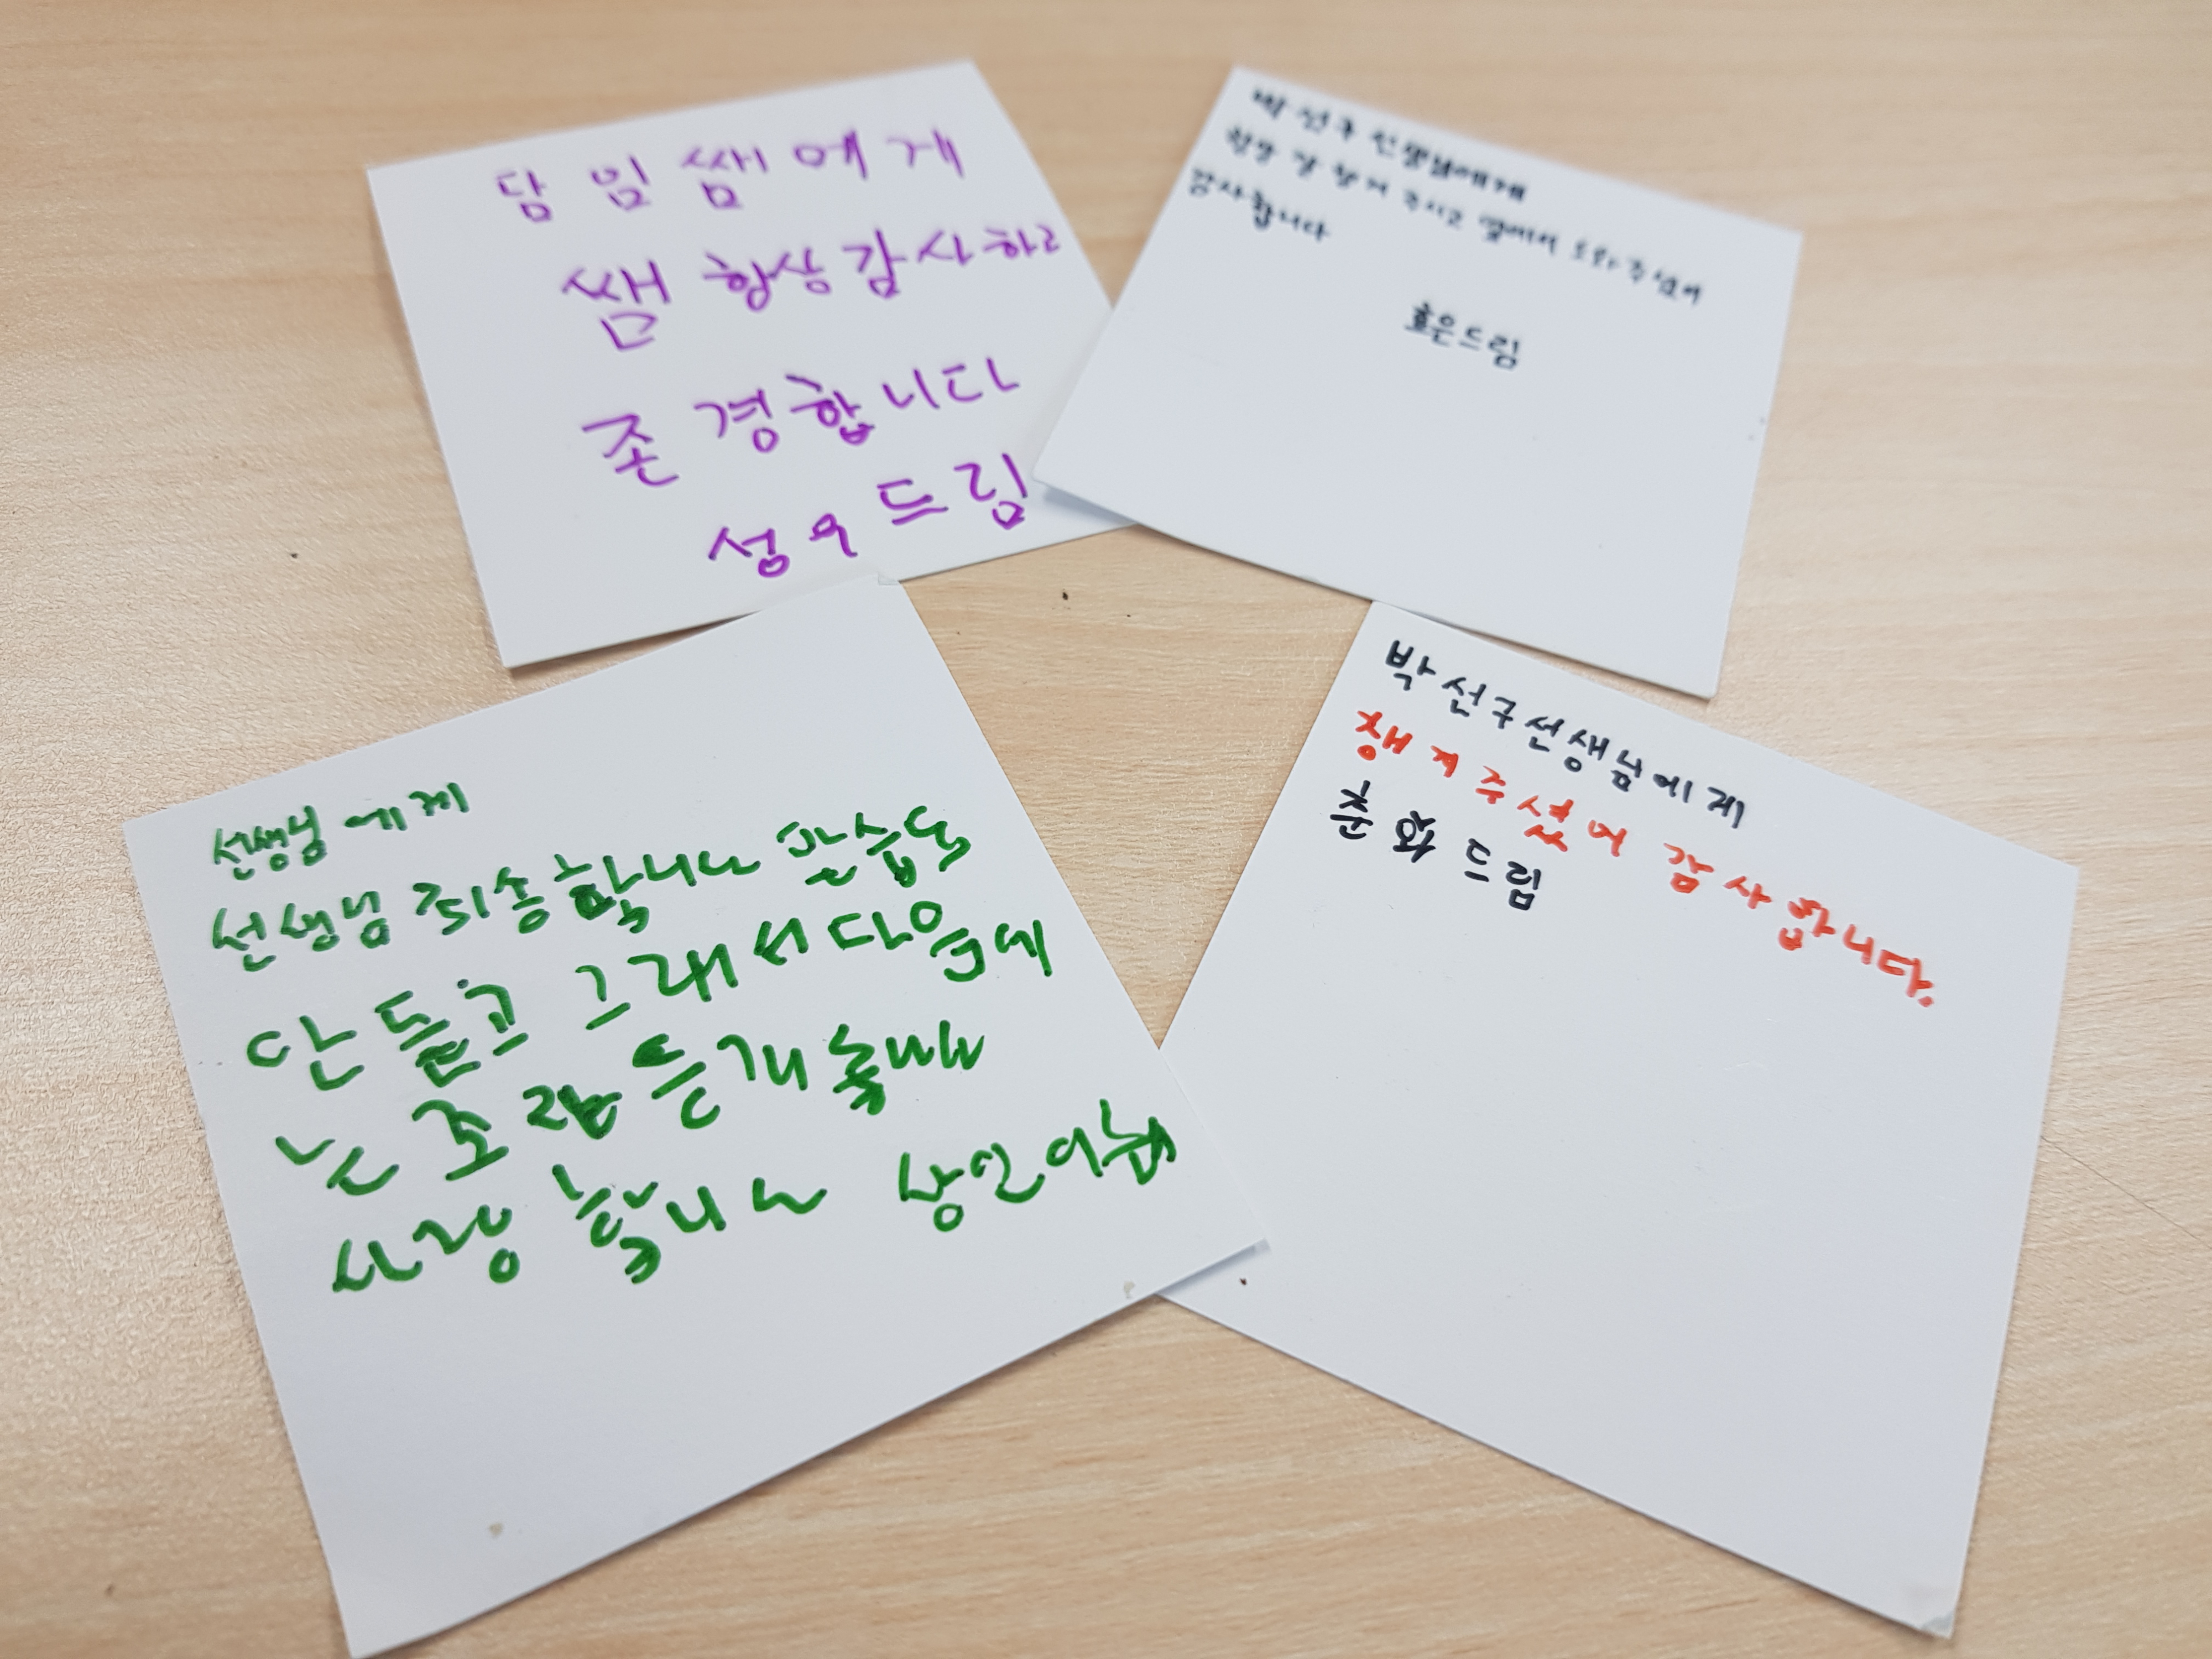 담임쌤에게
쌤 항상 감사하고
존경합니다
성우드림
박선구 선생님에게
항상 잘 챙겨 주시고 옆에서 도와 주셔서
감사합니다
효은드림
선생님에게
선생님 죄송합니다
그래서 다음에
는
사랑합니다
박선구선생님에게
챙겨주셨어 감사합니다.
춘화드림